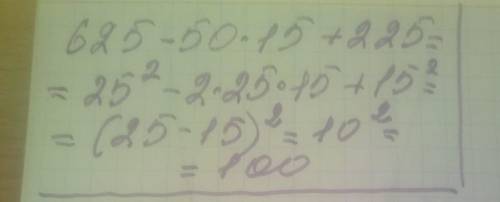 625-50·15+225=
=25²-2·25·15+15²=
=(25-15)²=10²=
=100